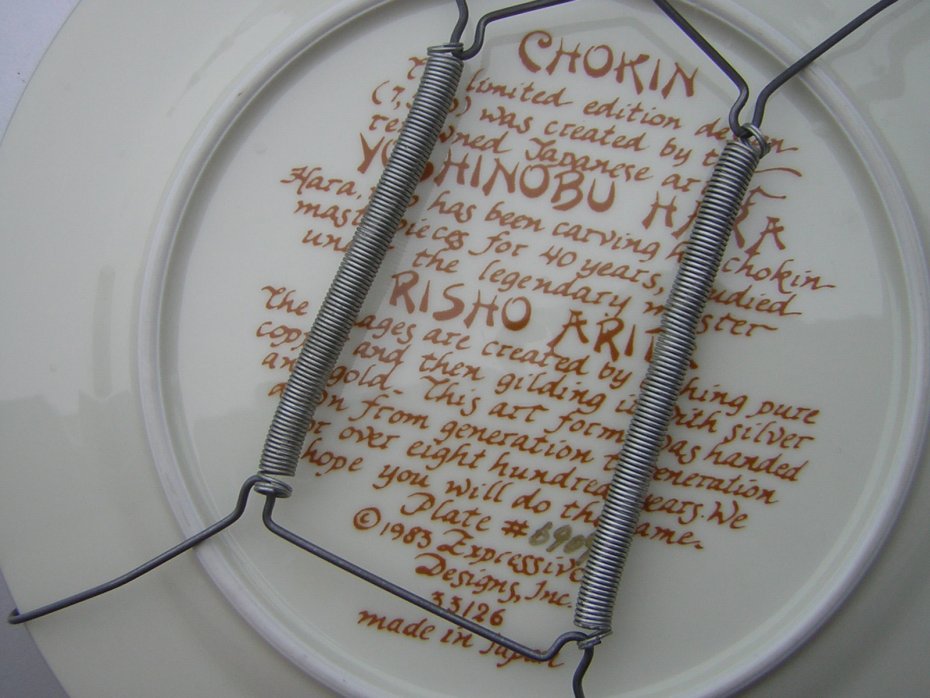 CHOKIN
limited edition design
(7,500) was created by the
renowned Japanese artist
YOSHINOBU HARA
Hara, who has been carving his chokin
masterpieces for 40 years, studied
under the legendary master
RISHO ARITA
The images are created by etching pure
copper and then gilding it with silver
and gold. This art form was handed
down from generation to generation
for over eight hundred years. We
hope you will do the same.
Plate #
© 1983 Expressive
Designs, Inc.
33126
made in Japan